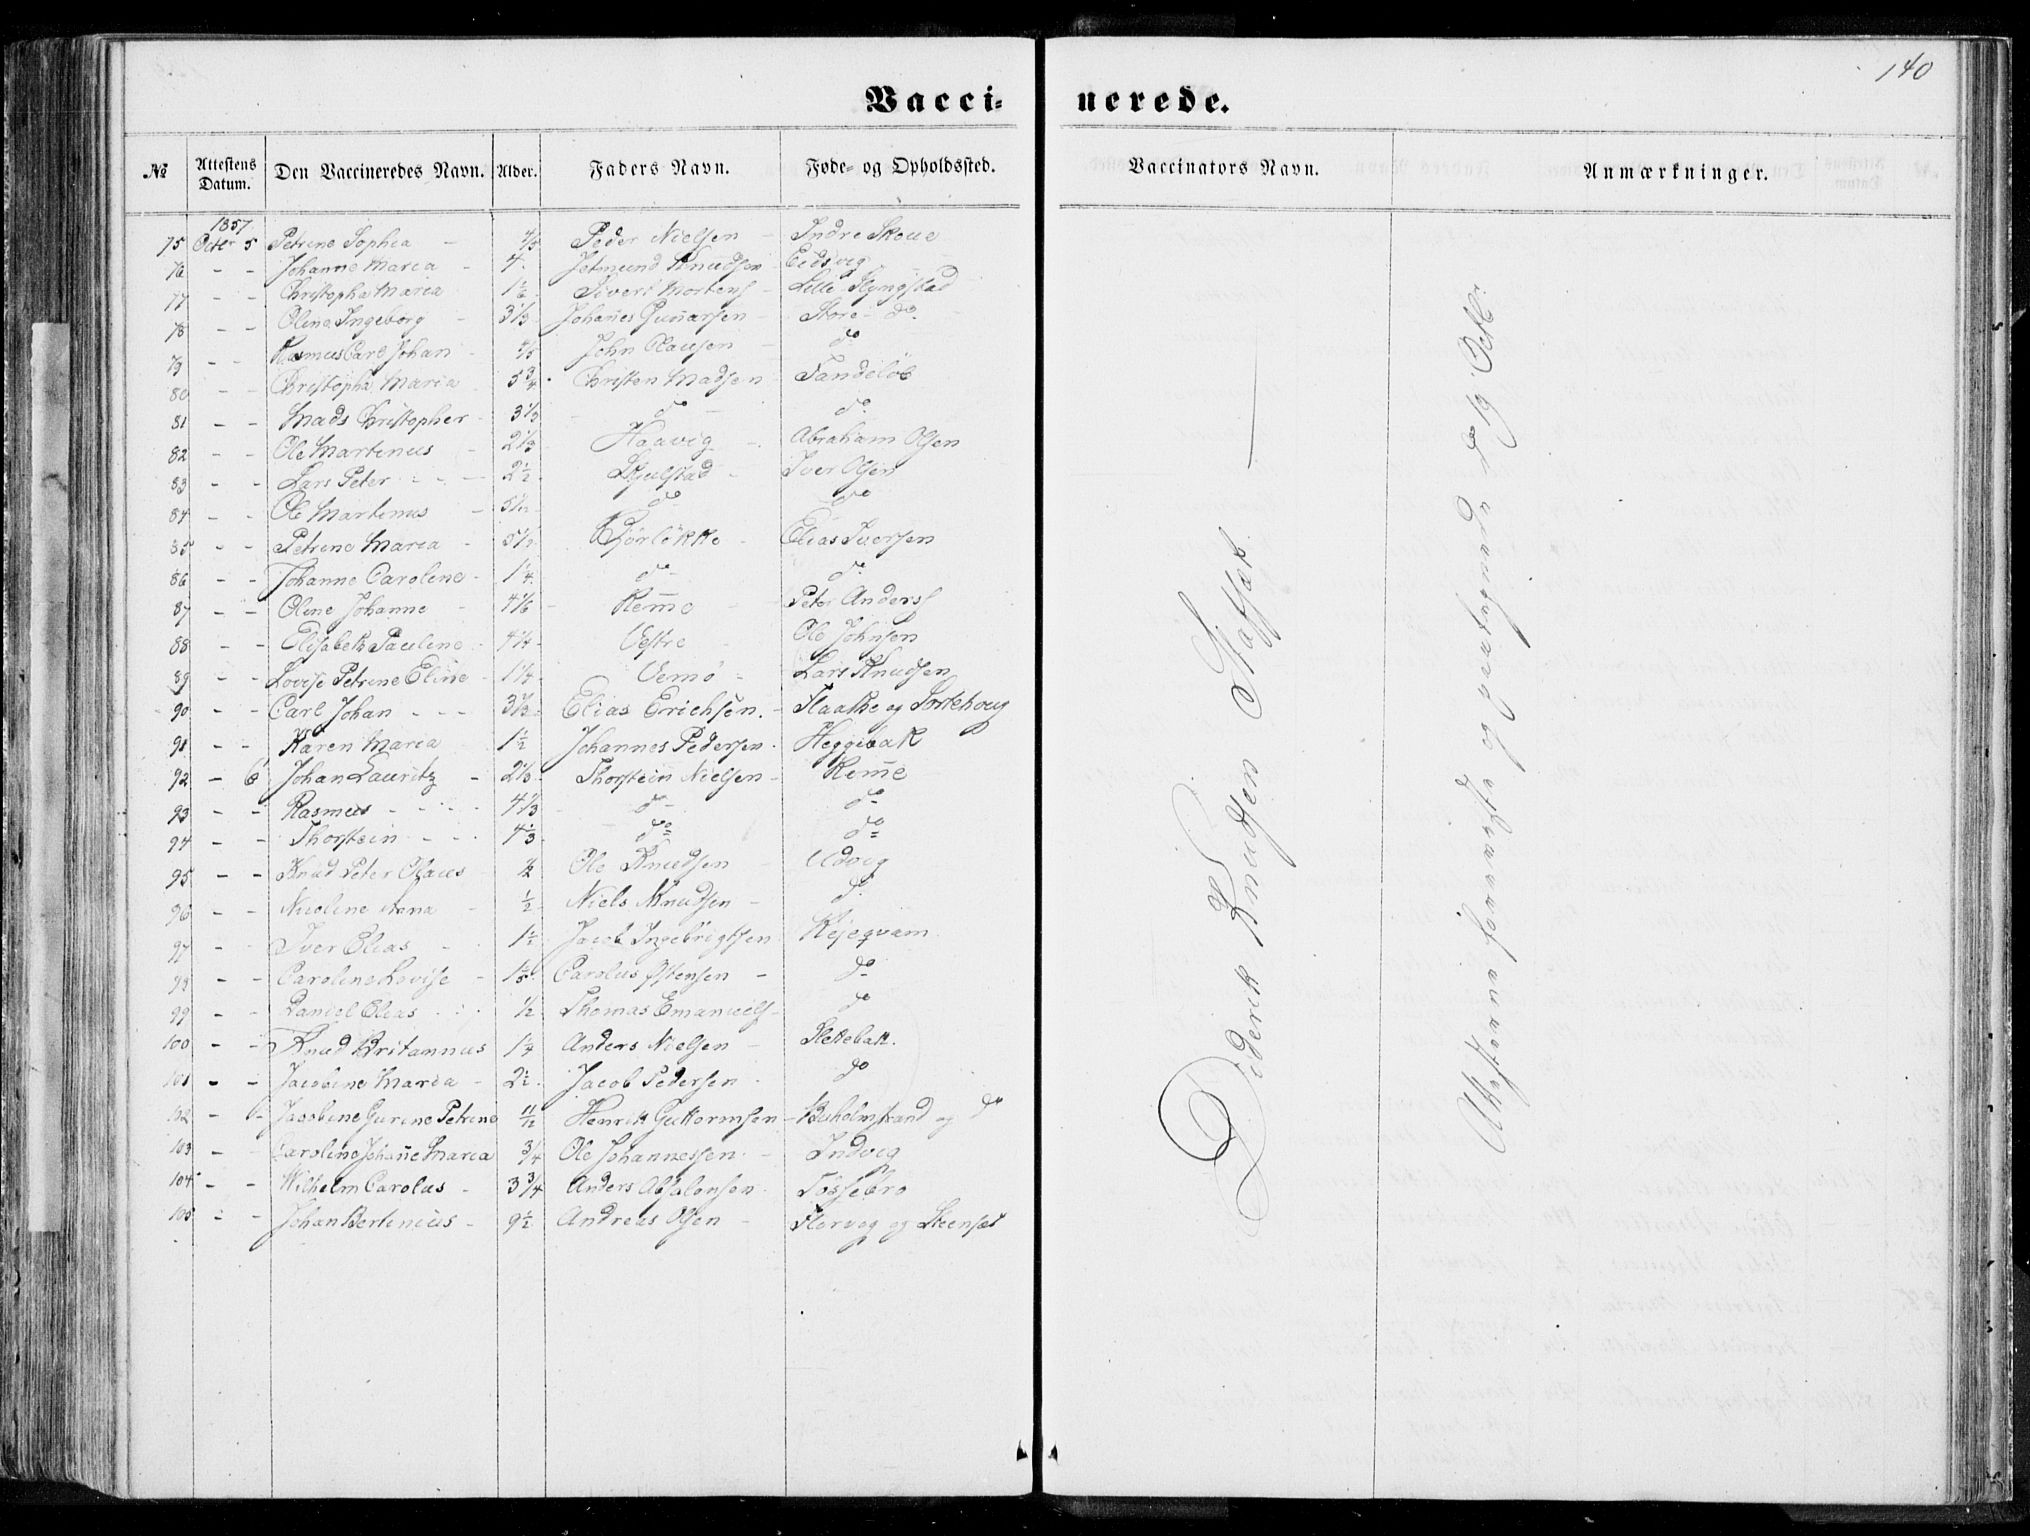 140
Vacci= nerede.
No Attestens Datum. Den Vaccineredes Navn. Alder. Faders Navn. Føde- og Opholdssted. Vaccinators Navn. Anmærkninger.
1857
75 Octbr 5 Petrine Sophia - 4/5 Peder Nielsen - Indre Skeue
76 - - Johanne Maria - 4. Jetmund Knudsen - Eidsvig
77 - - Christopha Maria 1 1/6 Sivert Mortens - Lille Kyngstad -
78 - - Oline Ingeborg - 3 1/3 Johanes Guñarsen - Store - do.
79 - - Rasmus Carl Johan - 4/5 John Olausen - do
80 Christopha Maria 5 3/4 Christen Madsen - Tandeløb
81 - - Mads Christopher - 3 1/3 - do - do.
82 - - Ole Martinus - 2 1/3 Haavig - Abraham Olsen
83 - - Lars Peter - - - 2 1/2 Skjelstad - Iver Olsen
84 - - Ole Martinus - do do
85 - - Petrine Maria - Kjørløkke - Elias Iversen
86 - - Johanne Caroline - 1 1/4 do - do.
87 - - Oline Johanne - 4 1/6 - Rem̄e - Peter Anders
88 - - Elisabeth Pauline - 4 1/4 - Vestre Ole Johnsen
89 - - Lovise Petrine Eline - 1 1/4 - Vemø - Lars Knudsen
90 - - Carl Johan - - - 3 1/3 Elias Erichsen. - Flaathe og Sortehoug
91 - - Karen Maria 1 1/2 Johannes Pedersen - Heggibak
92 - 6 Johan Lauritz - 2 1/3 - Thorstein Nielsen - Rem̄e
93 - - Rasmus - - - - 4 1/3 - do - do -
94 - - Thorstein - - - 4 1/3 - do do
95 - - Knud Peter Olaus 1/2 Ole Knudsen - Udvig
96 - - Nicoline Anna - 1/2 Niels Knudsen - do.
97 - Iver Elias - 1 1/2 Jacob Ingebrigtsen Kejeqvam
98 - - Caroline Lovise - 1 1/5 Carolus Østensen - do
99 - - Daniel Elias - - - 1/2 Thomas Emanuels - do
100 - - Knud Britannus 1 1/4 Anders Nielsen - Slettebak.
101 - - Jacobine Maria - 2 1/2. Jacob Pedersen - do
102 - - Jacobine Gurine Petrine 11/12 Henrik Guttormsen - Buholmstrand og do
103 - - Caroline Johañe Maria 3/4 Ole Johannessen - - Indvig
104 - - Wilhelm Carolus - 3 3/4 Anders Absalonsen - Tøssebro
105 - - Johan Bertinius - 9 1/2 Andreas Olsen - Florvog og Steensæt
Diderik Knudsen Stafsæt.
Attesterne foreviiste og paategnede d. 19 Octbr.